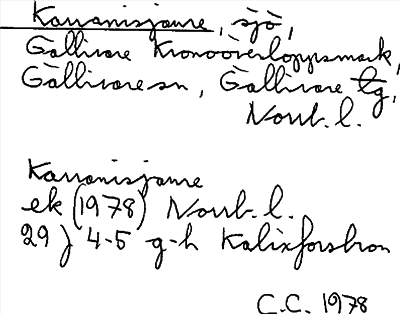 Karranisjaure, sjö,
Gällivare Kronoöverloppsmark,
Gällivare sn, Gällivare tg,
Norrb. l.
Karranisjaure
ek (1978) Norrb. l.
29 J 4-5 g-h Kalixforsbron
C.C. 1978